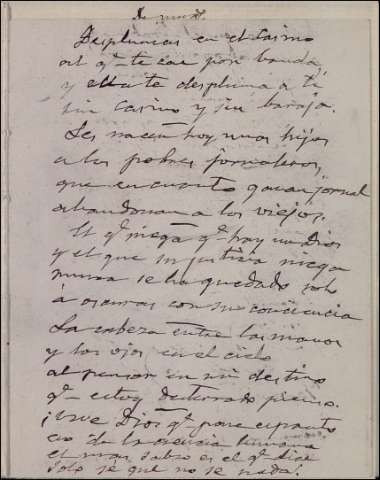 Desplumas en el Casino
al q.e te cae por banda,
y ella te despluma a ti
sin casino y sin baraja.
Les nacen hoy unos hijos
a los pobres jornaleros,
que en cuanto ganan jornal
abandonan a los viejos.
El q.e niega q.e hay un Dios
y el que su justicia niega
nunca se ha quedado solo
á oscuras con su conciencia
La cabeza entre las manos
y los ojos en el cielo
al pensar en mi destino
q.e estoy desterrado pienso.
¡Vive Dios q.e pone espanto
eso de la ciencia humana
el mas sabio es el q.e dice
solo sé que no se nada!